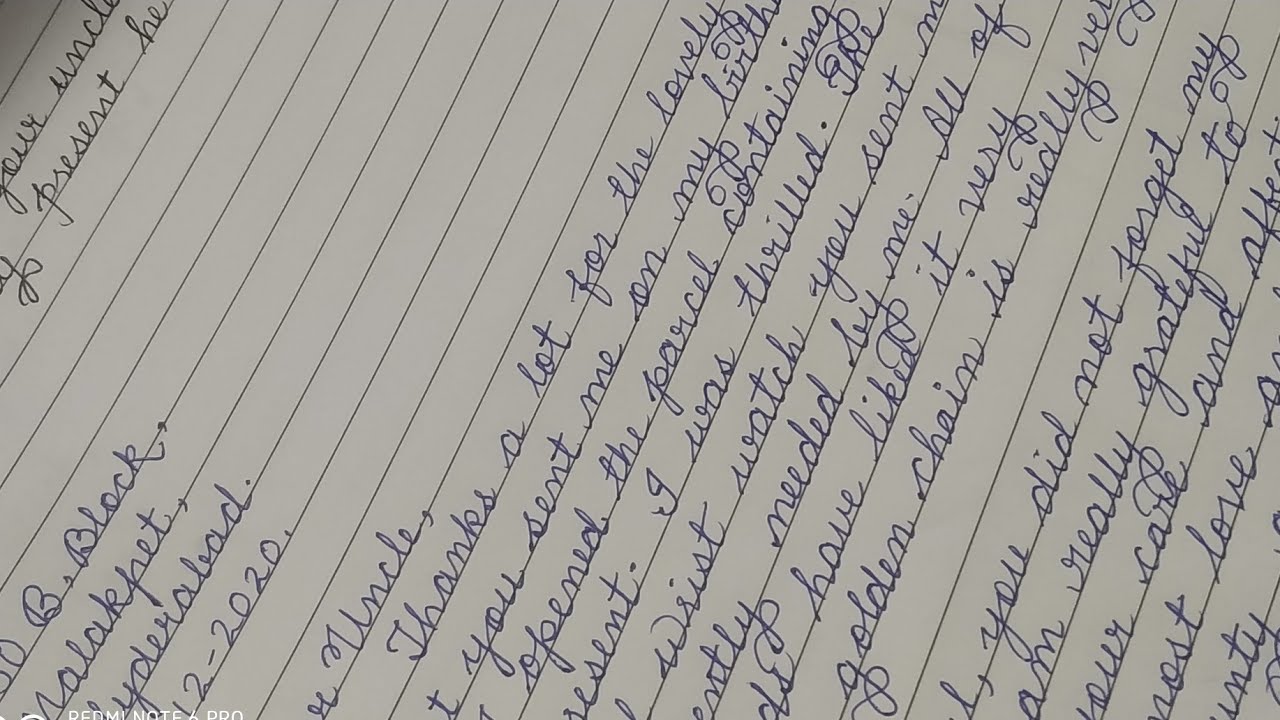 your uncle
present he
B. Block,
Malakpet,
Hyderabad.
2-2020.
Uncle,
Thanks a lot for the lovely
you sent me on my birth
opened the parcel containing
esent. I was thrilled. The
wrist watch you sent m
ently needed by me. All of
have liked it very
golden chain is really ver
you did not forget my
am really grateful to
your care and affect
most love an
REDMI NOTE 6 PRO